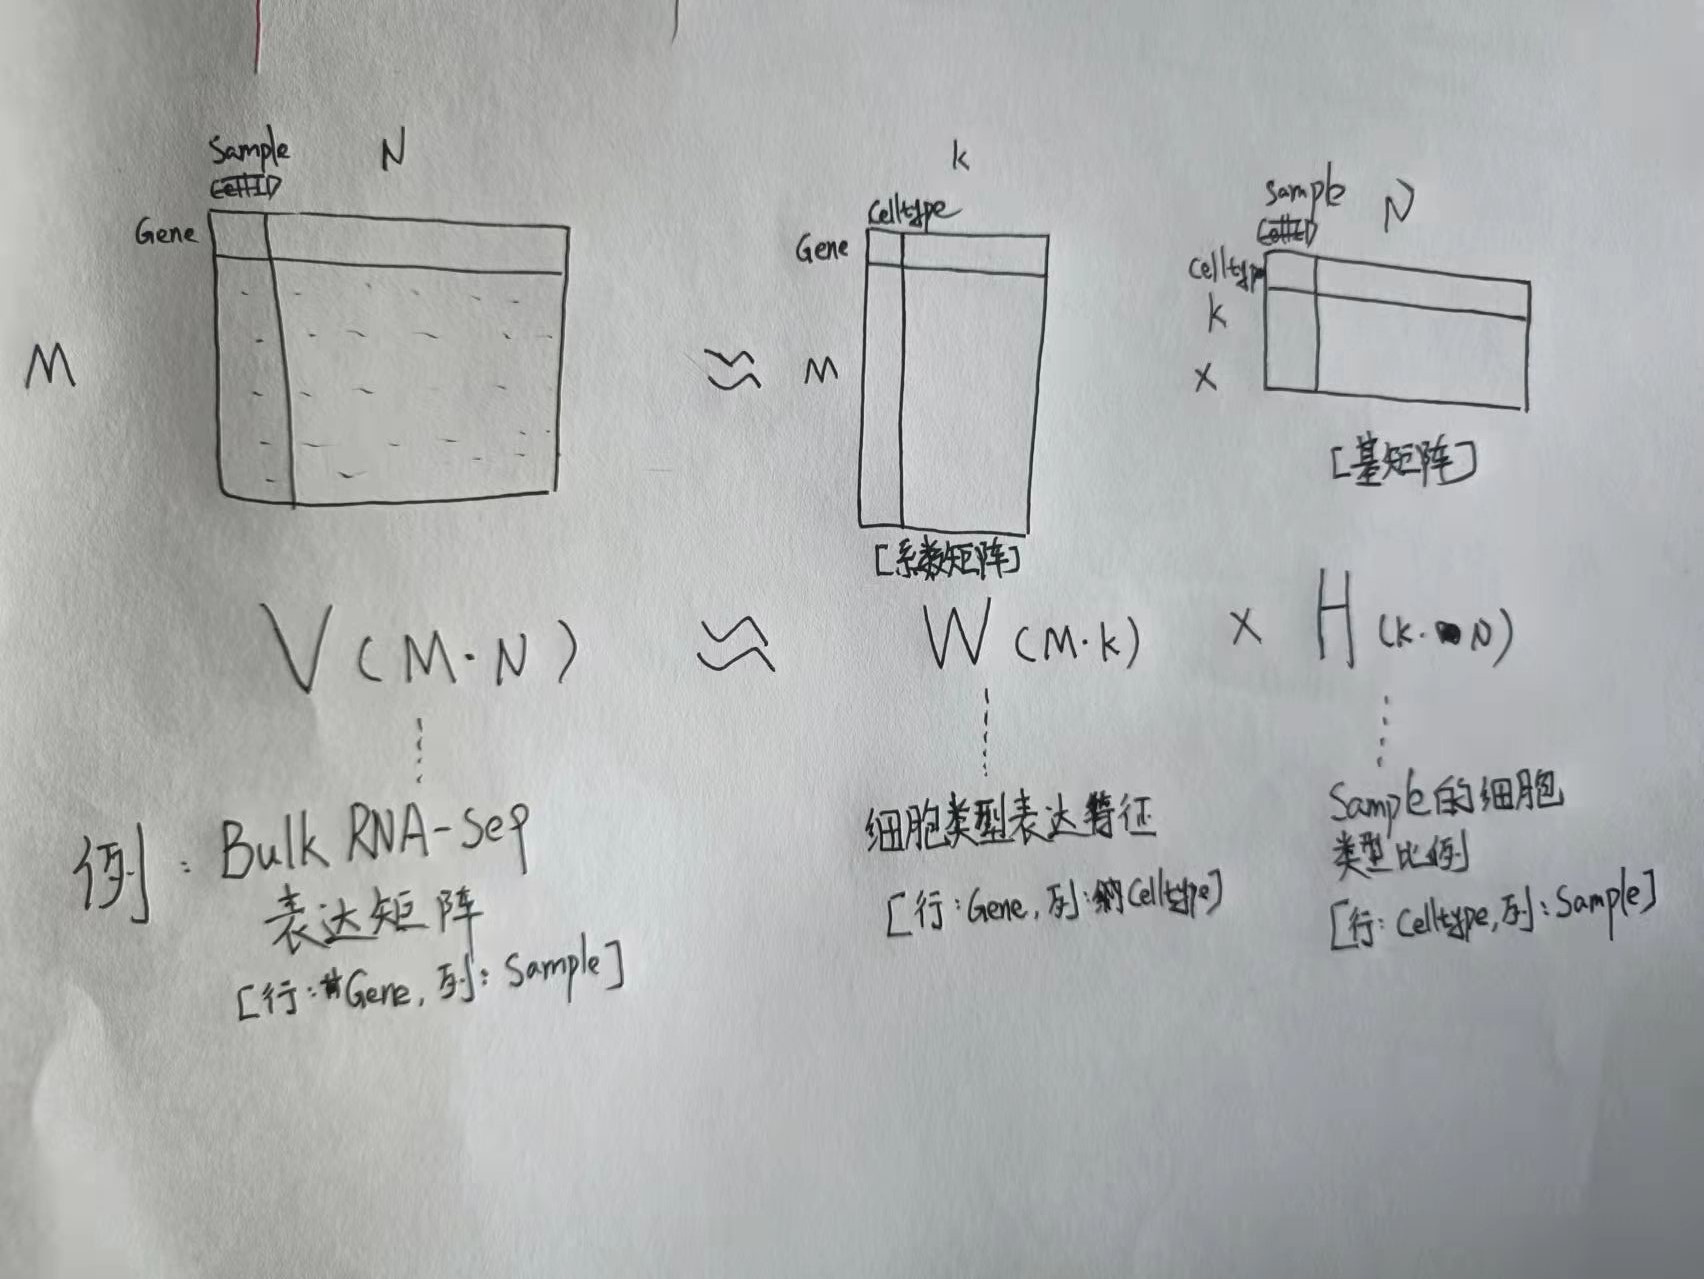 Sample N
CellID
Gene
M
≈
k
Celltype
Gene
M
[系数矩阵]
Sample N
CellID
Celltype
k
x
[基矩阵]
V (M·N) ≈ W (M·k) x H (k·N)
例: Bulk RNA-Seq
表达矩阵
[行: Gene, 列: Sample]
细胞类型表达特征
[行: Gene, 列: Celltype]
Sample的细胞
类型比例
[行: Celltype, 列: Sample]